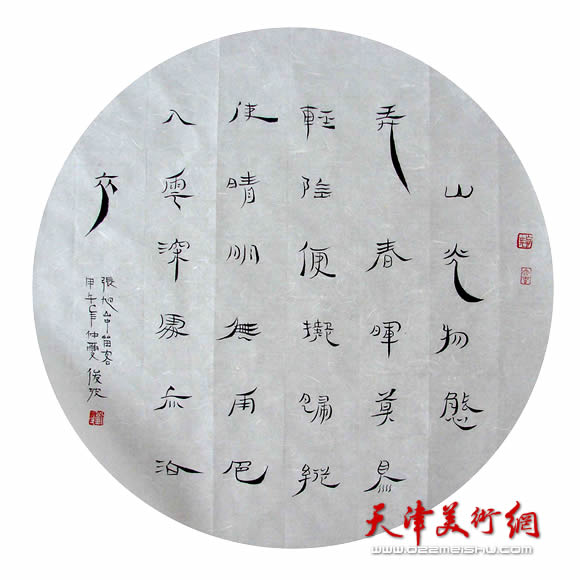 山光物態
弄春暉莫為
輕陰便擬歸縱
使晴明無雨色
入雲深處亦沾
衣
張旭山中留客
甲午年仲夏俊
天津美術網
www.022meishu.com